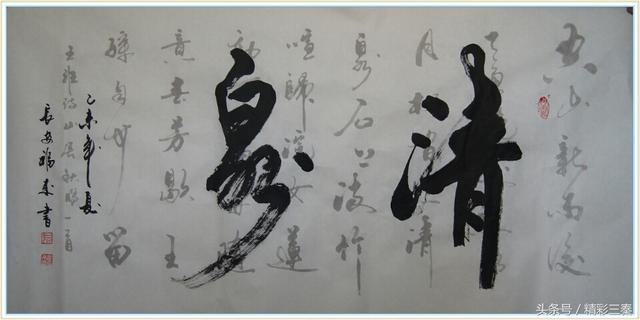 清泉
空山新雨後
天
月松間照清
泉石上流竹
喧歸浣女蓮
動
意春芳歇王
孫自可留
王維詩山居秋暝一首
乙未年夏
長安 書
头条号／精彩三秦